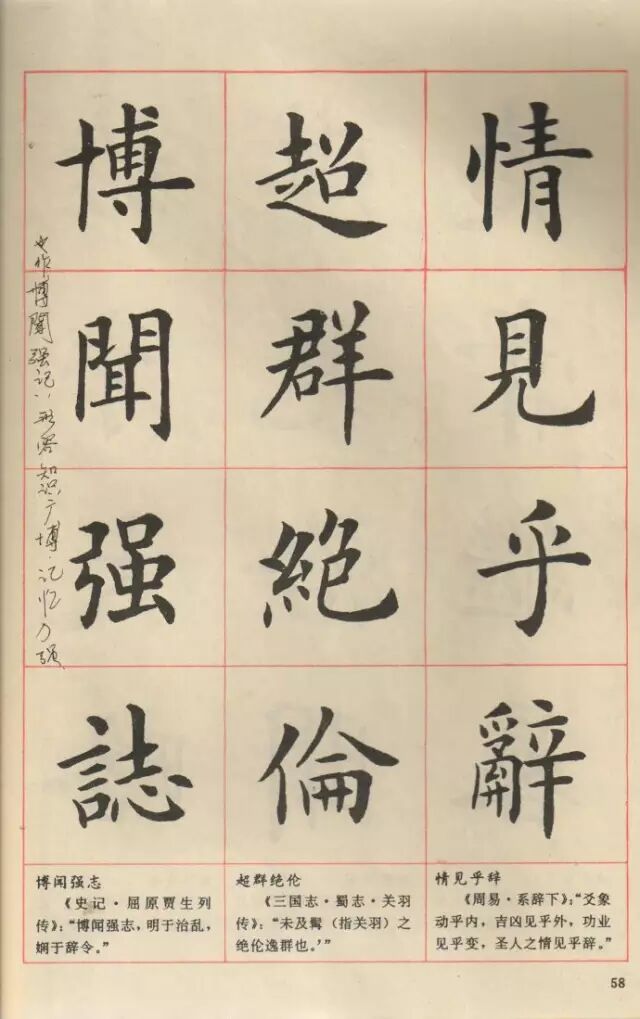 情見乎辭
超群絕倫
博聞强誌
也作博聞强记，形容知识广博.记忆力强
博闻强志
《史记·屈原贾生列
传》：“博闻强志，明于治乱，
娴于辞令。”
超群绝伦
《三国志·蜀志·关羽
传》：“未及髯（指关羽）之
绝伦逸群也。'”
情见乎辞
《周易·系辞下》：“爻象
动乎内，吉凶见乎外，功业
见乎变，圣人之情见乎辞。”
58